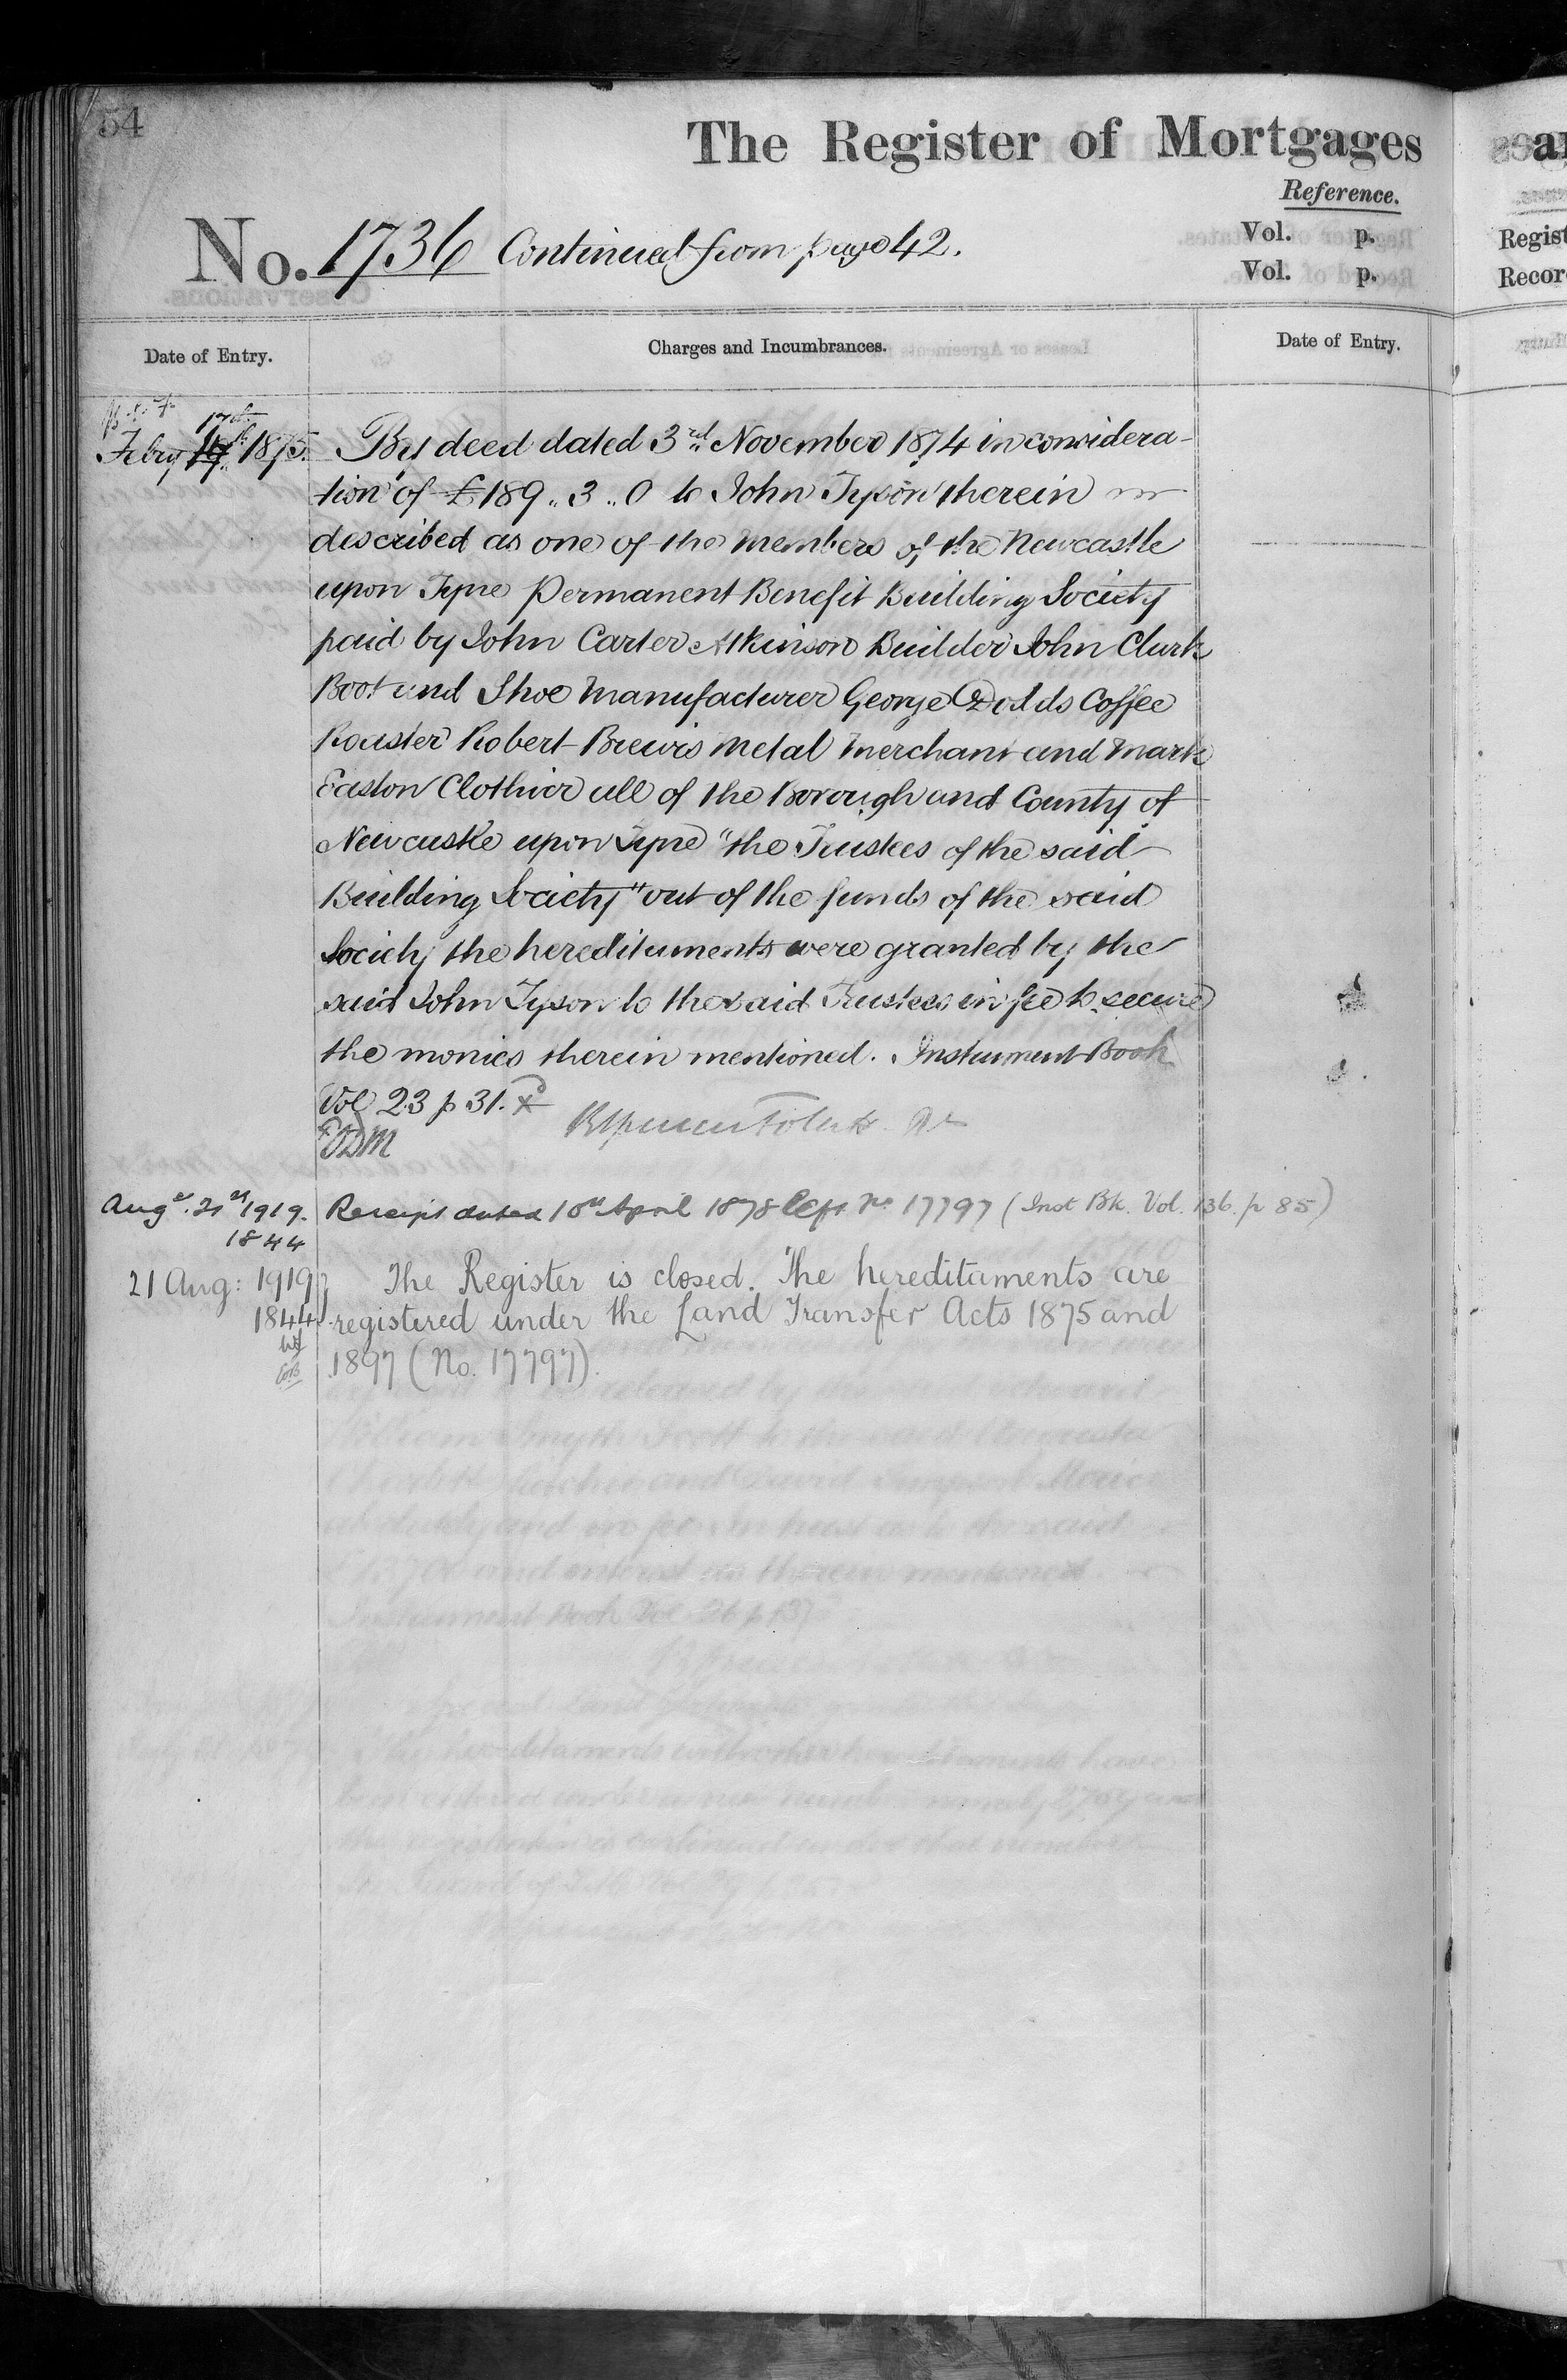 54
The Register of Mortgages
Reference.
No. 1736 Continued from page 42.
Vol. p.
Vol. p.
Date of Entry.
Charges and Incumbrances.
Date of Entry.
17th
Febry 1875.
By deed dated 3rd November 1874 in considera-
tion of £189..3..0 to John Tyson therein
described as one of the members of the Newcastle
upon Tyne Permanent Benefit Building Society
paid by John Carter Atkinson Builder John Clark
Boot and Shoe Manufacturer George Dodds Coffee
Roaster Robert Brewis Metal Merchant and Mark
Easton Clothier all of the Borough and County of
Newcastle upon Tyne "the Trustees of the said
Building Society" out of the funds of the said
Society the hereditaments were granted by the
said John Tyson to the said Trustees in fee to secure
the monies therein mentioned. Instrument Book
Vol 23 p 31.
Augst. 21st 1919.
1844
Receipt dated 18th April 1878 No 17797 (Inst Bk. Vol. 136. p 85)
21 Aug: 1919
1844
The Register is closed. The hereditaments are
registered under the Land Transfer Acts 1875 and
1897 (No. 17797).
Regist
Recor